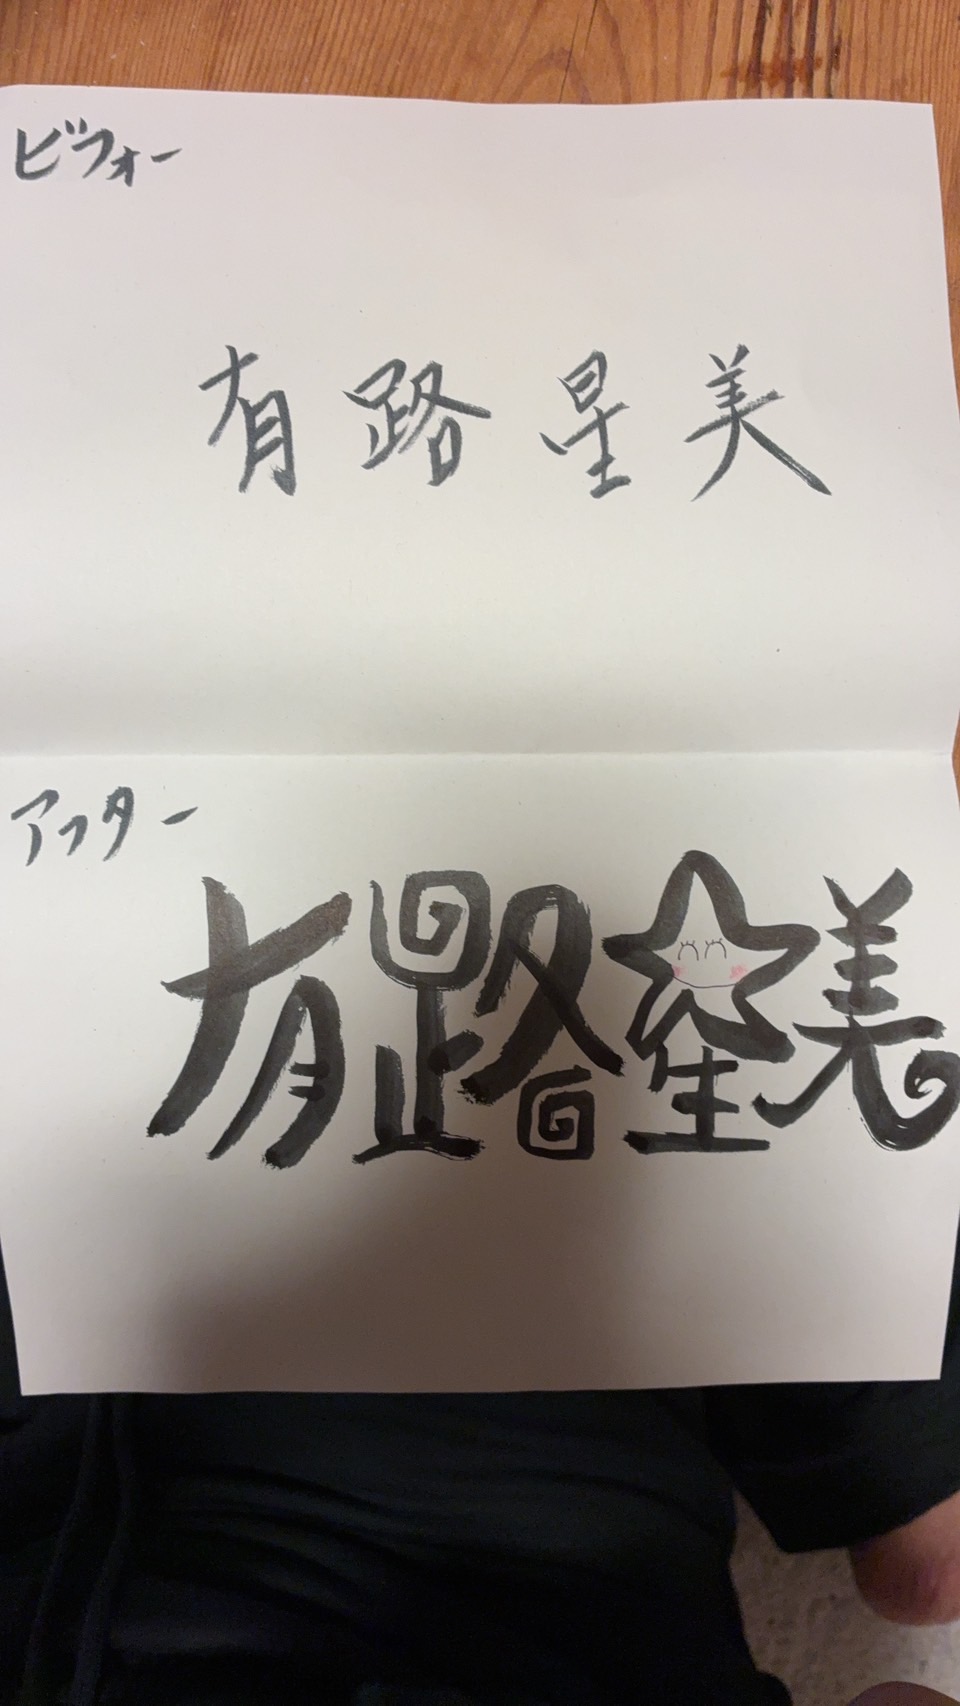 ビフォー
有路星美
アフター
有路星美